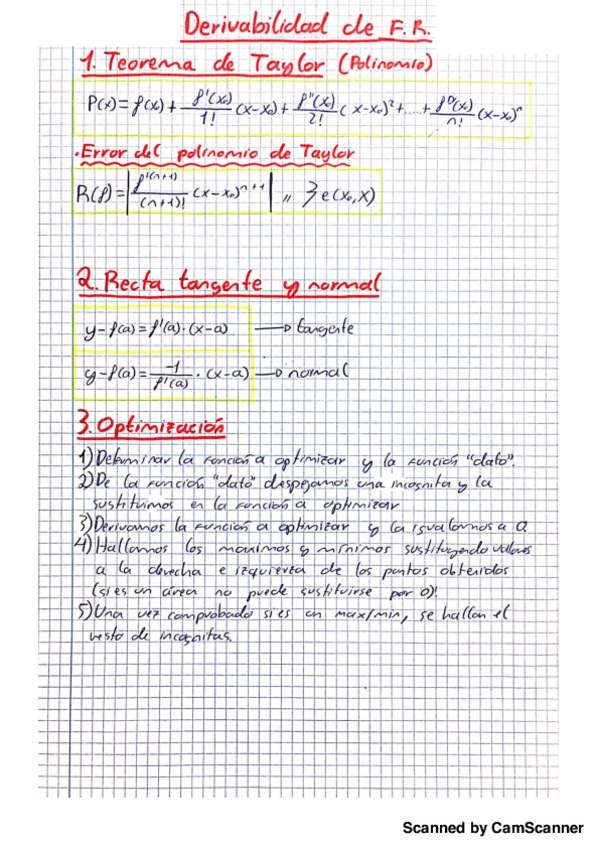 Derivabilidad de F.R.
1. Teorema de Taylor (Polinomio)
P(x) = f(x) + f'(x₀)/1! (x-x₀) + f''(x)/2! (x-x₀)² + ..... + fⁿ(x)/n! (x-x₀)ⁿ
. Error del polinomio de Taylor
R(f) = | f'⁽ⁿ⁺¹⁾/(n+1)! (x-x₀)ⁿ⁺¹ | ,, ℨ e (x₀,x)
2. Recta tangente y normal
y-f(a) = f'(a)·(x-a) → tangente
y-f(a) = -1/f'(a) · (x-a) → normal
3. Optimización
1) Determinar la función a optimizar y la función "dato".
2) De la función "dato" despejamos una incognita y la
sustituimos en la función a optimizar
3) Derivamos la función a optimizar y la igualamos a 0.
4) Hallamos los maximos y mínimos sustituyendo valores
a la derecha e izquierza de los puntos obtenidos
(si es un área no puede sustituirse por 0)!
5) Una vez comprobado si es un max/min, se hallan el
resto de incognitas.
Scanned by CamScanner